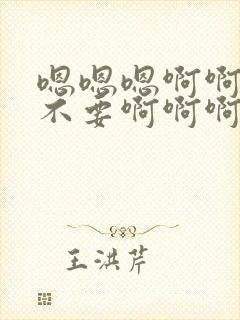 嗯嗯嗯啊啊
不要啊啊啊
王洪芹